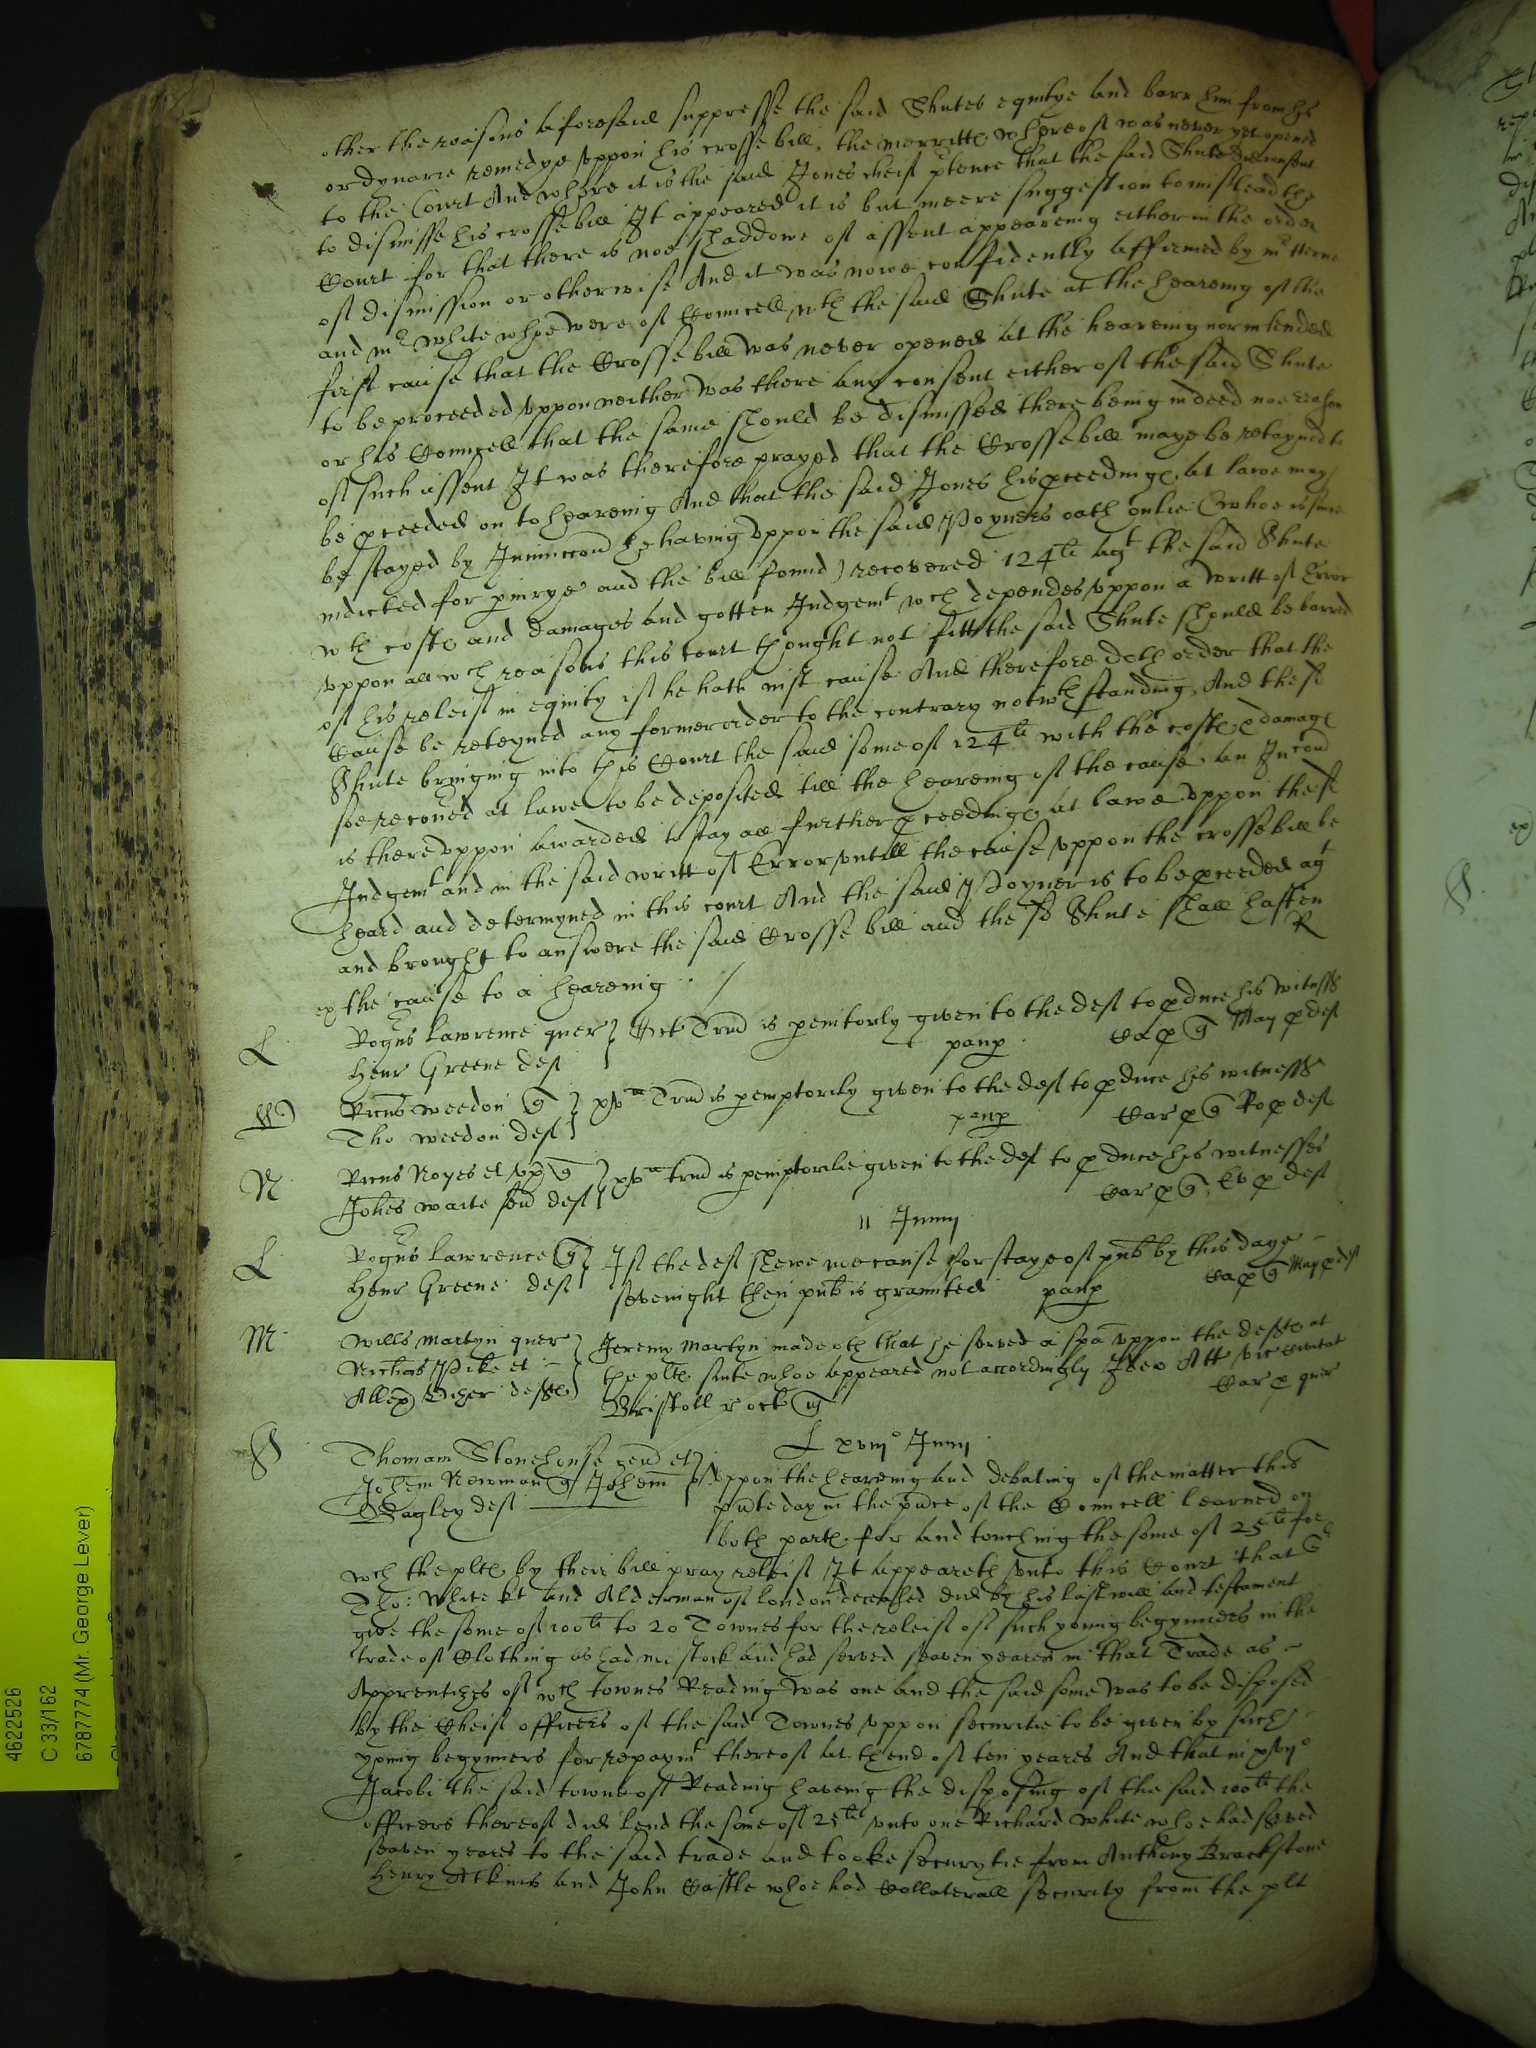 other the reasons aforesaid suppresse the said Shutes equitye and barr him from his
ordynarie remedye uppon his crosse bill, the merritts whereof was never yet opened
to the Court And where it is the said Jones cheif ptence that the said Shute did consent
to dismisse his crosse bill It appeared it is but meere suggestion to mislead the
Court for that there is noe shaddowe of assent appeareing either in the order
of dismission or otherwise And it was nowe confidently affirmed by mr
and mr White whoe were of Councell wth the said Shute at the heareing of the
first cause that the Crosse bill was never opened at the heareing nor intended
to be proceeded uppon neither was there any consent either of the said Shute
or his Councell that the same should be dismissed there being indeed noe reason
of such assent It was therefore prayed that the Crosse bill maye be retayned to
be pceeded on to heareing And that the said Jones his pceedings at lawe may
be stayed by Iniunccon he having uppon the said Poyners oath onlie (whoe is since
indicted for piurye and the bill found) recovered 124li agt the said Shute
wth costs and damages and gotten Judgemt wch dependes uppon a writt of Error
uppon all wch reasons this court thought not fitt the said Shute should be barred
of his releif in equity if he hath iust cause And therefore doth order that the
Cause be reteyned any former order to the contrary notwthstanding, And the sd
Shute bringing into this Court the said some of 124li with the costs & damags
soe recoued at lawe to be deposited till the heareing of the cause, an Iniuncon
is thereuppon awarded to stay all further pceedings at lawe uppon the sd
Judgemt and in the said writt of Error untill the cause uppon the crosse bill be
heard and determyned in this court And the said Poyner is to be pceeded agt
and brought to answere the said Crosse bill and the sd Shute shall hasten
ex the cause to a heareing R
L Rogus Lawrence quer Oct Trin is pemtorly given to the deft to pduce his witnesses
Henr Greene def panp Ca p q May p def
W Ricus Weedon q xva Trin is pemptorily given to the deft to pduce his witnesses
Tho Weedon def panp Car p q Ro p def
N Ricus Noyes et ux q xva trin is pemptorilie given to the deft to pduce his witnesses
Johes Waite sen def Car p q Ev p def
11 Junii
L Rogus Lawrence q If the deft shewe noe cause for staye of pub by this daye
Henr Greene def sevenight then pub is graunted panp Ca p q May p def
M Wills Martyn quer Jeremy Martyn made oth that he served a spa uppon the defts at
Nichas Pike et the plts suite whoe appeared not accordingly Ideo Att vic Civitat
Allex defts Bristoll r oct Car p quer
L xviijo Junii
S Thomam Stonehouse gen et Uppon the heareing and debating of the matter this
Johem Newman q Johem pnte day in the pnce of the Councell learned on
Bagley def both parts for and touching the some of 25li for
wch the plts by their bill pray releif It appeareth unto this Court that Sr
Tho: White kt and Alderman of London deceased did by his last will and testament
give the some of 100li to 20 Townes for the releif of such young begynners in the
trade of Clothing as had noe stock and had served seaven yeares in that Trade as
Apprentizes of wch townes Reading was one and the said some was to be disposed
by the Cheif officers of the said Townes uppon securitie to be given by such
yonng begynners for repaymt thereof at thend of ten yeares And that in
Jacobi the said towne of Reading haveing the disposing of the said 100li the
officers thereof did lend the some of 25li unto one Richard White whoe had served
seaven yeares to the said trade and tooke securytie from Anthony Brackstone
Henry Atkins and John Castle whoe had Collaterall security from the plt
4622526
C 33/162
6787774 (Mr. George Lever)